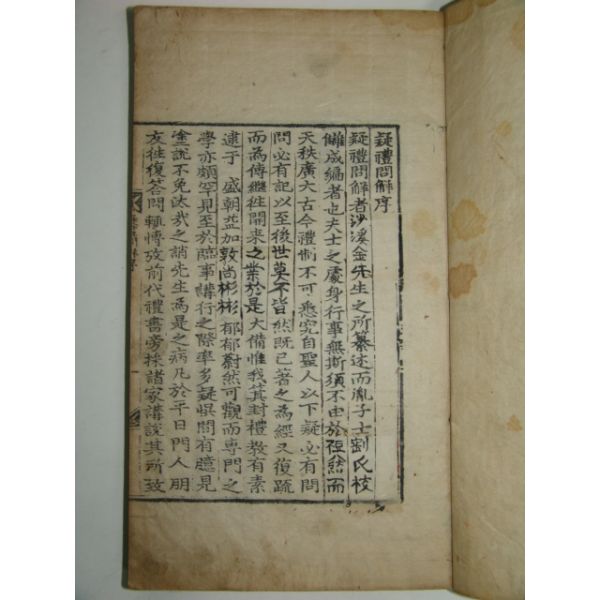 疑禮問解序
疑禮問解者沙溪金先生之所纂述而胤子士剛氏校
讎成編者也夫士之處身行事無斯須不由於禮然而
天秩廣大古今禮制不可悉究自聖人以下疑必有問
問必有記以至後世莫不皆然既已著之為經又復疏
而為傳繼往開來之業於是大備惟我箕封禮教有素
逮于 盛朝益加敦尚彬彬郁郁蔚然可觀而專門之
學亦頗罕見至於臨事講行之際率多疑悞間有臆見
塗說不免汰哉之誚先生為是之病凡於平日門人朋
友往復答問輒愽攷前代禮書旁採諸家講說其所致